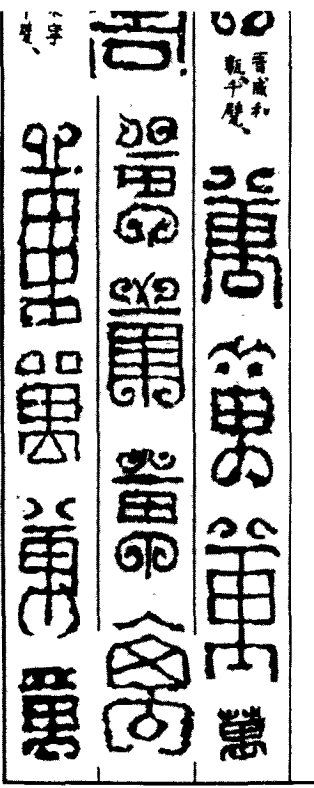 晉咸和
甎千甓、
萬
萬
萬
萬
萬
萬
萬
萬
字
甓、
萬
萬
萬
萬